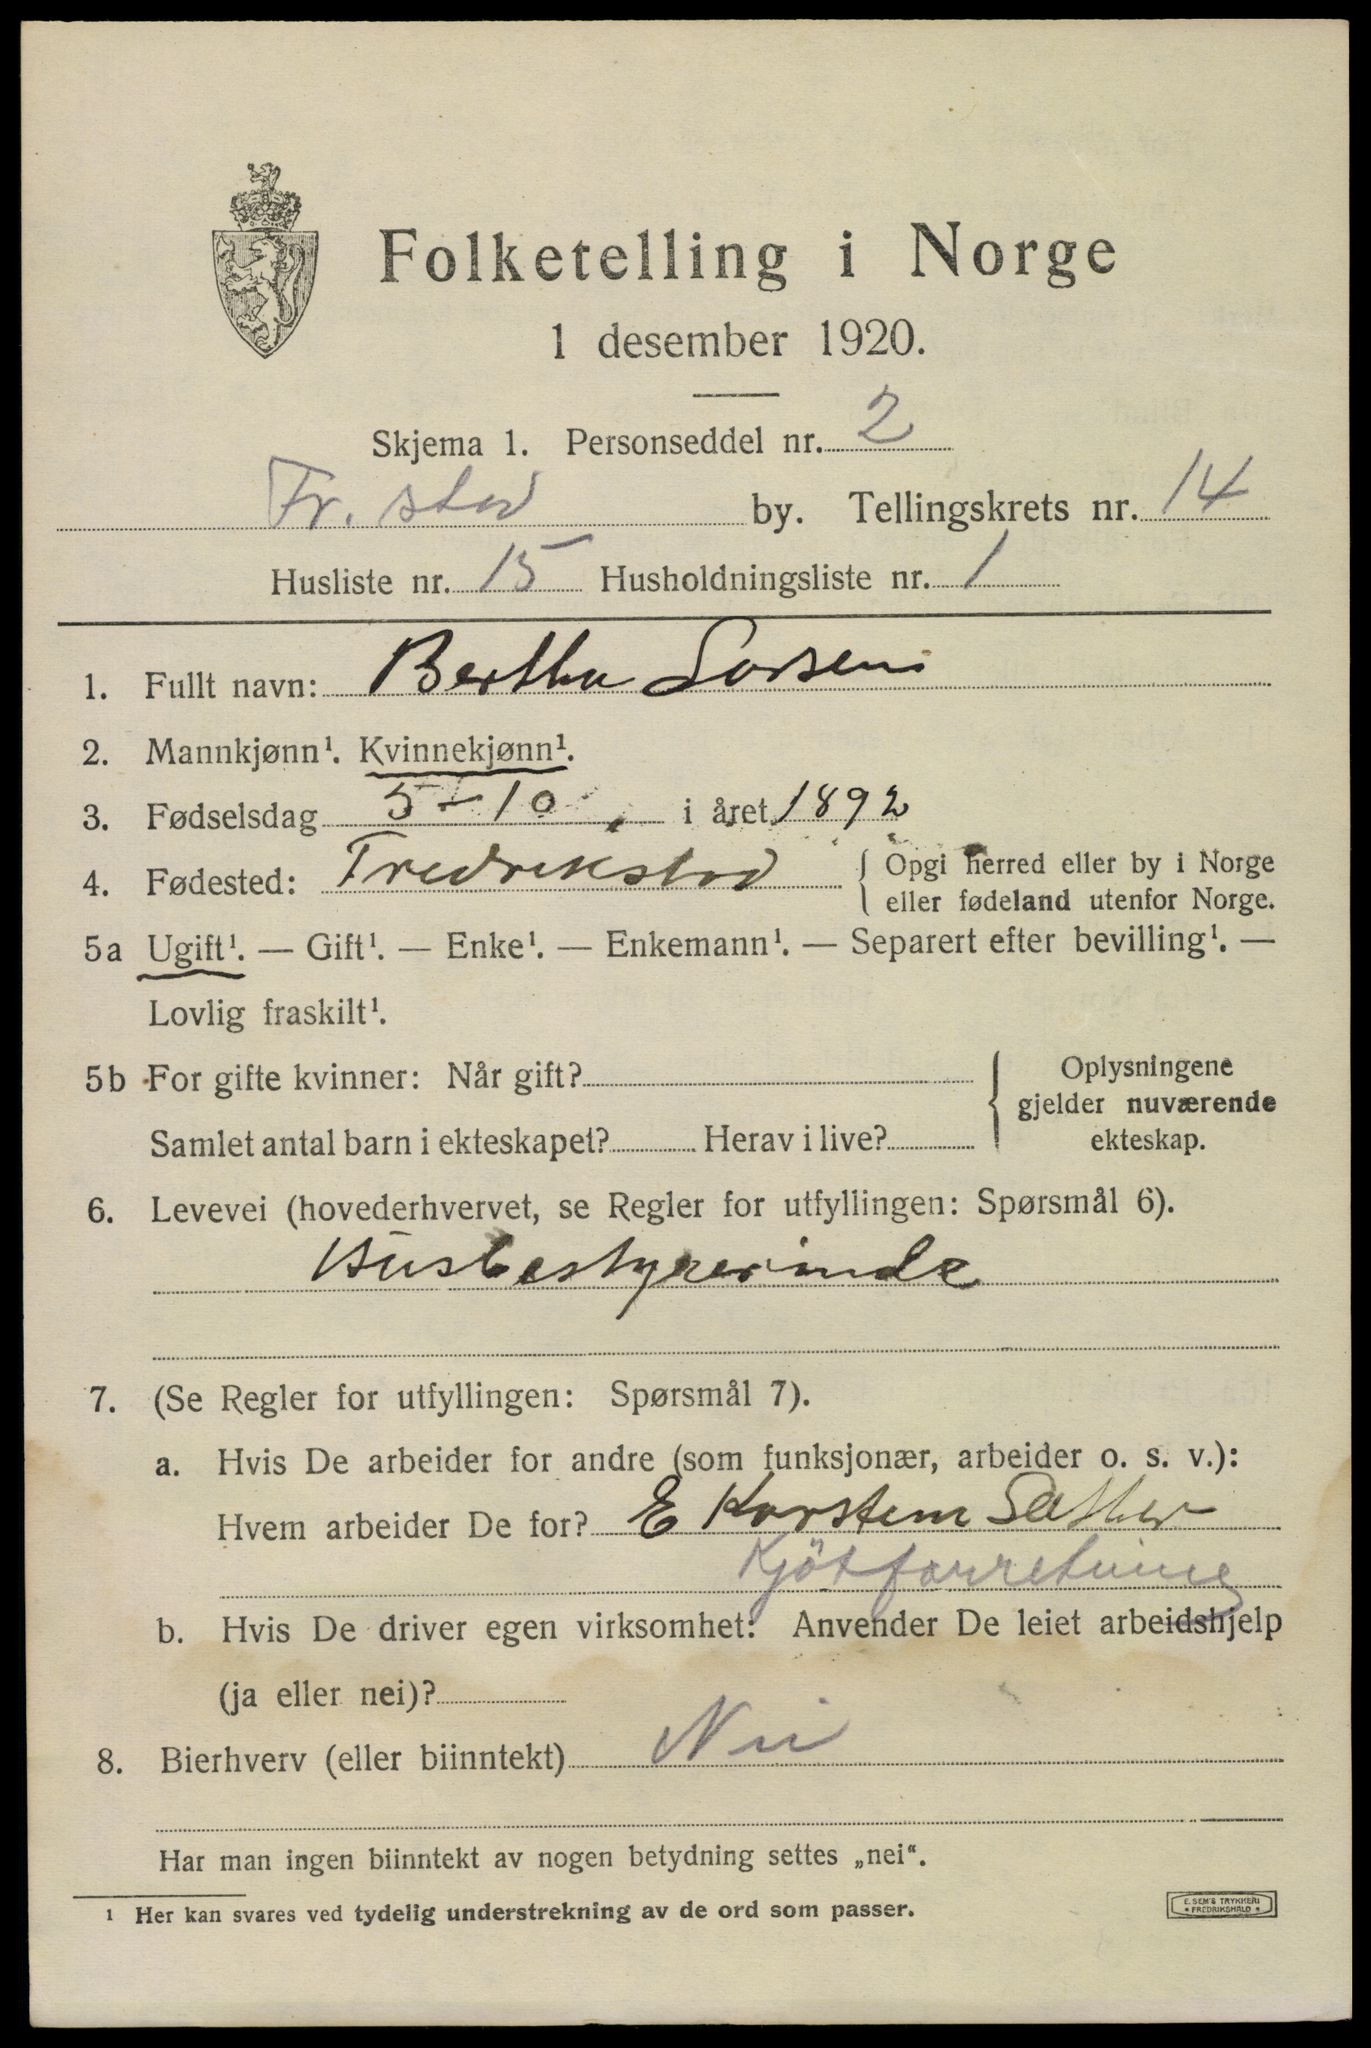 Folketelling i Norge
1 desember 1920.
Skjema 1. Personseddel nr. 2
Fr. stad by. Tellingskrets nr. 14
Husliste nr. 15 Husholdningsliste nr. 1
1. Fullt navn: Bertha Larsen
2. Mannkjønn¹. Kvinnekjønn¹.
3. Fødselsdag 5-10 i året 1892
4. Fødested: Fredrikstad { Opgi herred eller by i Norge
eller fødeland utenfor Norge.
5a Ugift¹. — Gift¹. — Enke¹. — Enkemann¹. — Separert efter bevilling¹. —
Lovlig fraskilt¹.
5b For gifte kvinner: Når gift? { Oplysningene
gjelder nuværende
Samlet antal barn i ekteskapet? Herav i live? ekteskap.
6. Levevei (hovederhvervet, se Regler for utfyllingen: Spørsmål 6).
Husbestyrerinde
7. (Se Regler for utfyllingen: Spørsmål 7).
a. Hvis De arbeider for andre (som funksjonær, arbeider o. s. v.):
Hvem arbeider De for? E Karstem Sæther
Kjötforretning
b. Hvis De driver egen virksomhet: Anvender De leiet arbeidshjelp
(ja eller nei)?
8. Bierhverv (eller biinntekt) Nei
Har man ingen biinntekt av nogen betydning settes „nei“.
1 Her kan svares ved tydelig understrekning av de ord som passer.
E. SEM'S TRYKKERI
* FREDRIKSHALD *